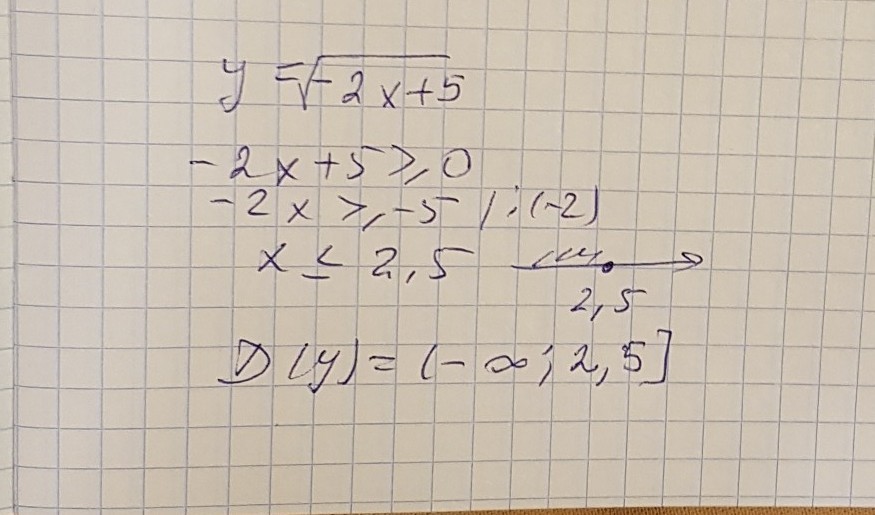 y = √-2x+5
-2x+5 ⩾ 0
-2x ⩾ -5 /:(-2)
x ≤ 2,5
2,5
D(y) = (-∞; 2,5]